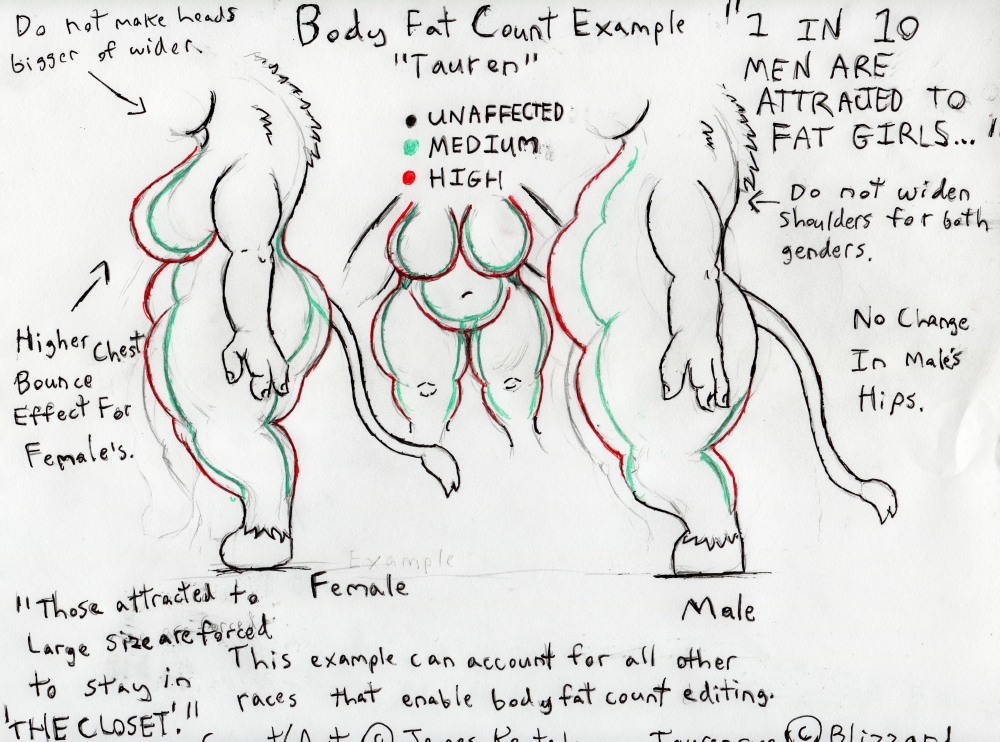 Do not make heads
bigger of wider.
Body Fat Count Example
"Tauren"
UNAFFECTED
MEDIUM
HIGH
"1 IN 10
MEN ARE
ATTRACTED TO
FAT GIRLS..."
Do not widen
shoulders for both
genders.
Higher Chest
Bounce
Effect For
Female's.
No Change
In Male's
Hips.
Example
Female
Male
"Those attracted to
Large size are forced
to stay in
'THE CLOSET'."
This example can account for all other
races that enable body fat count editing.
(C) Blizzard